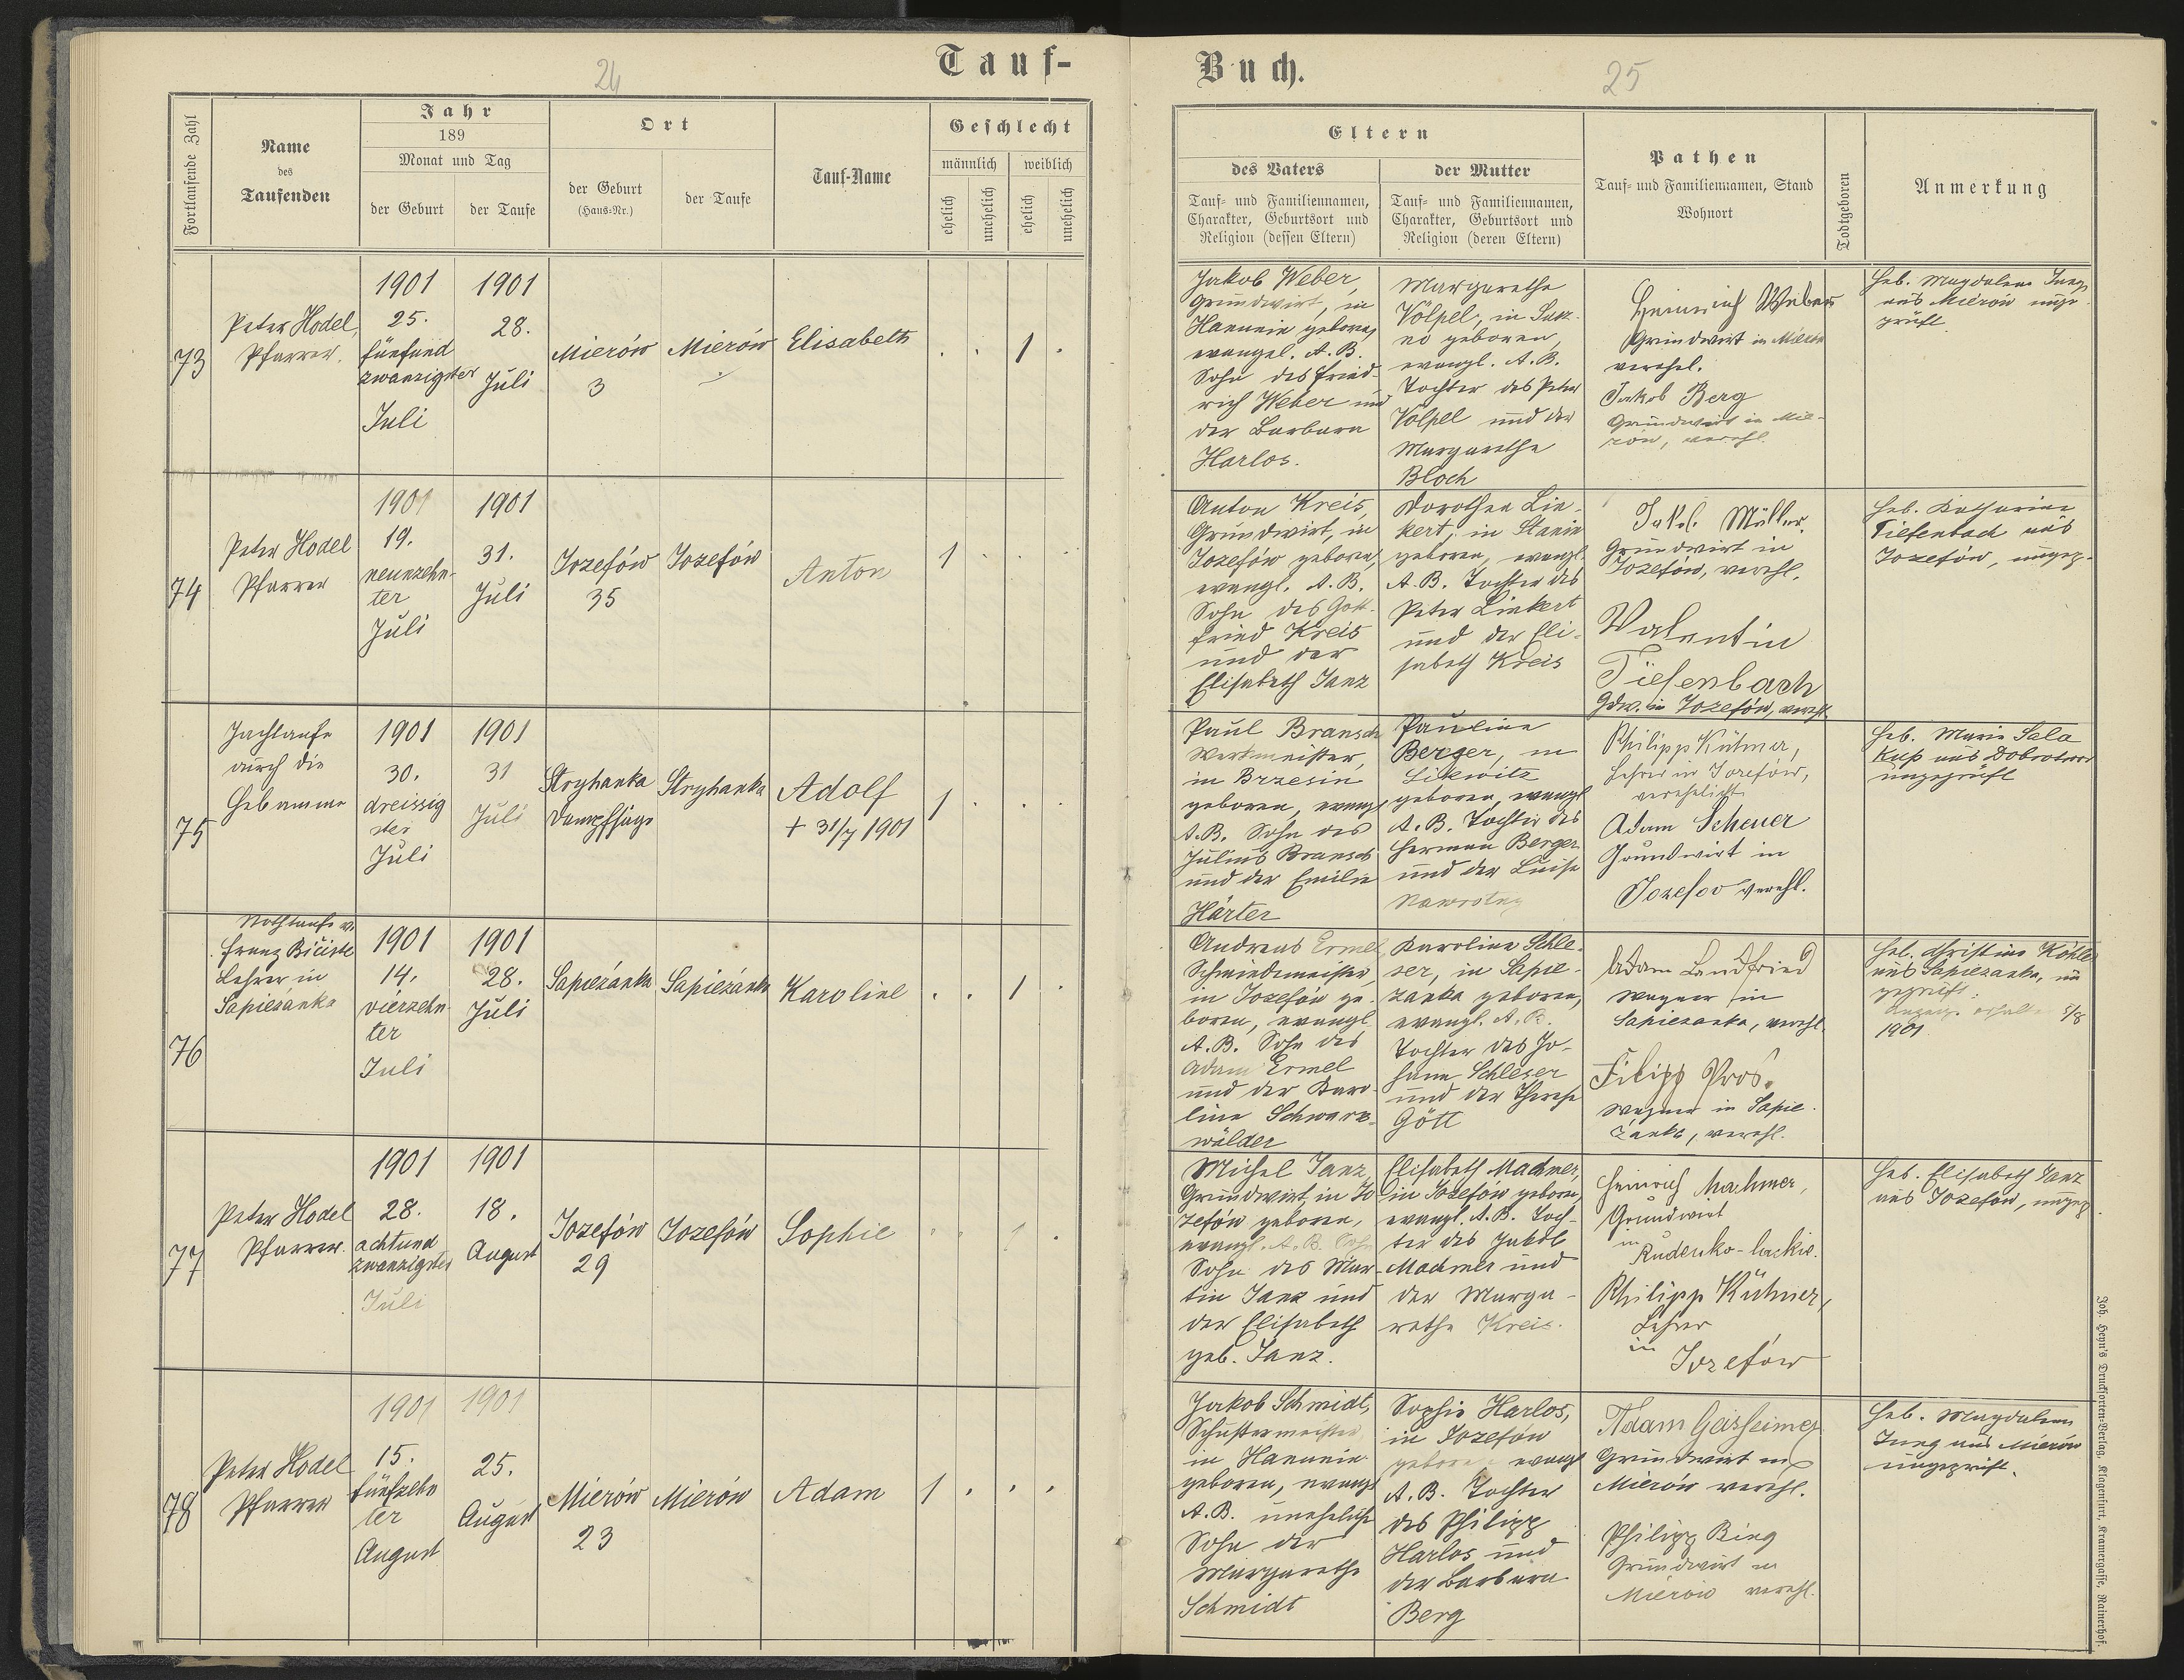 24
Tauf-
Fortlaufende Zahl
Name
des
Taufenden
Jahr
189
Monat und Tag
der Geburt
der Taufe
Ort
der Geburt
(Haus-Nr.)
der Taufe
Tauf-Name
Geschlecht
männlich
weiblich
ehelich
unehelich
ehelich
unehelich
73
Peter Hodel,
Pfarrer.
1901
25.
fünfund
zwanzigster
Juli
1901
28.
Juli
Mierów
3
Mierów
Elisabeth
. . 1 .
74
Peter Hodel
Pfarrer
1901
19.
neunzehn-
ter
Juli
1901
31.
Juli
Jozefów
35
Jozefów
Anton
1 . . .
75
Jachtaufe
durch die
Hebamme
1901
30.
dreissig
ster
Juli
1901
31
Juli
Stryhanka
Dampfsäge
Stryhanka
Adolf
+ 31/7 1901
1 . . .
76
Nothtaufe v.
Franz
Lehrer in
Sapiezanka
1901
14.
vierzehn-
ter
Juli
1901
28.
Juli
Sapiezánka
Sapiezánka
Karoline
. . 1 .
77
Peter Hodel
Pfarrer.
1901
28.
achtund
zwanzigster
Juli
1901
18.
August
Jozefów
29
Jozefów
Sophie
. . 1 .
78
Peter Hodel
Pfarrer
1901
15.
fünfzehn
ter
August
1901
25.
August
Mierów
23
Mierów
Adam
1 . . .
Buch.
25
Eltern
des Vaters
Tauf- und Familiennamen,
Charakter, Geburtsort und
Religion (dessen Eltern)
der Mutter
Tauf- und Familiennamen,
Charakter, Geburtsort und
Religion (deren Eltern)
Pathen
Tauf- und Familiennamen, Stand
Wohnort
Todtgeboren
Anmerkung
Jakob Weber,
Grundwirt, in
Hanunin geboren,
evangel. A. B.
Sohn des Fried-
rich Weber und
der Barbara
Harlos.
Margarethe
Völpel, in
geboren,
evangl. A. B.
Tochter des Peter
Völpel und der
Margarethe
Bloch
Heinrich Weber
Grundwirt in Mierów
verehel.
Jakob Berg
Grundwirt in Mie-
rów, verehl.
Heb. Magdalena Jung
aus Mierów unge-
prüft.
Anton Kreis,
Grundwirt, in
Jozefów geboren,
evangl. A. B.
Sohn des Gott-
fried Kreis
und der
Elisabeth Janz
Dorothea Lin-
kert, in Stanin
geboren, evangl.
A. B. Tochter des
Peter Linkert
und der Eli-
sabeth Kreis
Jakob Müller.
Grundwirt in
Jozefów, verehl.
Valentin
Tiefenbach
Gdw. in Jozefów, verehl.
Heb. Katharina
Tiefenbach aus
Jozefów, ungep.
Paul Bransch
Werkmeister,
in Brzesin
geboren, evangl.
A. B. Sohn des
Julius Bransch
und der Emilie
Härter
Pauline
Berger, in
Likwitz
geboren, evangl.
A. B. Tochter des
Herman Berger
und der Luise
Nawrotny
Philipp Kühner,
Lehrer in Jozefów,
verehelicht
Adam Scheuer
Grundwirt in
Josefov verehl.
Heb. Maria Sala
Kup aus Dobrotwor
ungeprüft
Andreas Ermel
Schmiedemeister,
in Jozefów ge-
boren, evangl.
A. B. Sohn des
Adam Ermel
und der Karo-
line Schwarz-
wälder
Karolina Schle-
ser, in Sapie-
zánka geboren,
evangl. A. B.
Tochter des Jo-
hann Schleser
und der Therese
Gött
Adam Landfried
Wagner in
Sapiezanka, verehl.
Filipp Pros.
Wagner in Sapie-
zanka, verehl.
Heb. Christine Köhler
aus Sapiezanka, un
geprüft.
erhalten 8/8
1901
Michel Janz,
Grundwirt, in Jo
zefów geboren,
evangl. A. B.
Sohn des Mar-
tin Janz und
der Elisabeth
geb. Janz.
Elisabeth Machmer,
in Jozefów geboren,
evangl. A. B. Toch-
ter des Jakob
Machmer und
der Marga-
rethe Kreis.
Heinrich Machmer,
Grundwirt
in
Rudenko-lackie.
Philipp Kühner,
Lehrer
in
Jozefów
Heb. Elisabeth Janz
aus Jozefów, ungep.
Jakob Schmidt,
Schustermeister
in Hanunin
geboren, evangl.
A. B. uneheliche
Sohn der
Margarethe
Schmidt
Sophie Harlos,
in Jozefów
geboren evangl.
A. B. Tochter
des Philipp
Harlos und
der Barbara
Berg
Adam Geisheimer
Grundwirt in
Mierów verehl.
Philipp Bing
Grundwirt in
Mierów verehl.
Heb. Magdalena
Jung aus Mierów
ungeprüft.
Joh. Heyn's Drucksorten-Verlag, Klagenfurt, Kramergasse, Rainerhof.